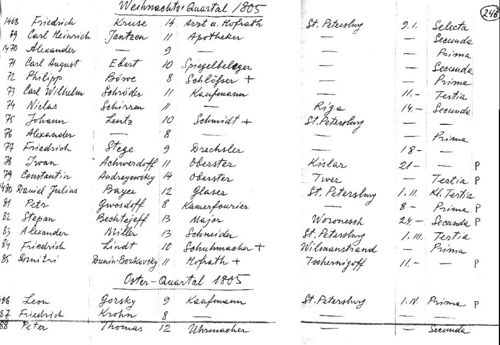 Weihnachts-Quartal 1805
246
1468 Friedrich Kruse 14 Arzt u. Hofrath St. Petersburg 9.1. Selecta
69 Carl Heinrich Jantzen 11 Apotheker — — Secunda
1470 Alexander — 9 — — — Prima
71 Carl August Ebert 10 Spiegelbeleger — — Secunda
72 Philipp Böwe 8 Schlosser + — — Prima
73 Carl Wilhelm Schröder 11 Kaufmann — 11.- Tertia
74 Niclas Schirren 11 — Riga 14.- Secunda
75 Johann Lentz 10 Schmidt + St. Petersburg — —
76 Alexander — 8 — — — Prima
77 Friedrich Stege 9 Drechsler — 18 - —
78 Iwan Achwerdoff 11 Oberster Kislar 21 - — P
79 Constantin Andreyewsky 14 Oberster Twer — Tertia P
1480 Daniel Julius Bayer 12 Glaser St. Petersburg 1.II. Kl. Tertia
81 Petr Gwosdoff 8 Kamerfourier — 8 - Prima P
82 Stepan Bechtejeff 13 Major Woronesch 24 - Secunda P
83 Alexander Miller 13 Schneider St. Petersburg 1.III. Tertia
84 Friedrich Lindt 10 Schuhmacher + Wilmanstrand — Prima
85 Dmitri Dunin-Borkowsky 11 Hofrath + Tschernigoff 11.- — P
Oster-Quartal 1805
86 Leon Gorsky 9 Kaufmann St. Petersburg 1.IV. Prima P
87 Friedrich Krohn 8 — — — —
88 Peter Thomas 12 Uhrmacher — — Secunda